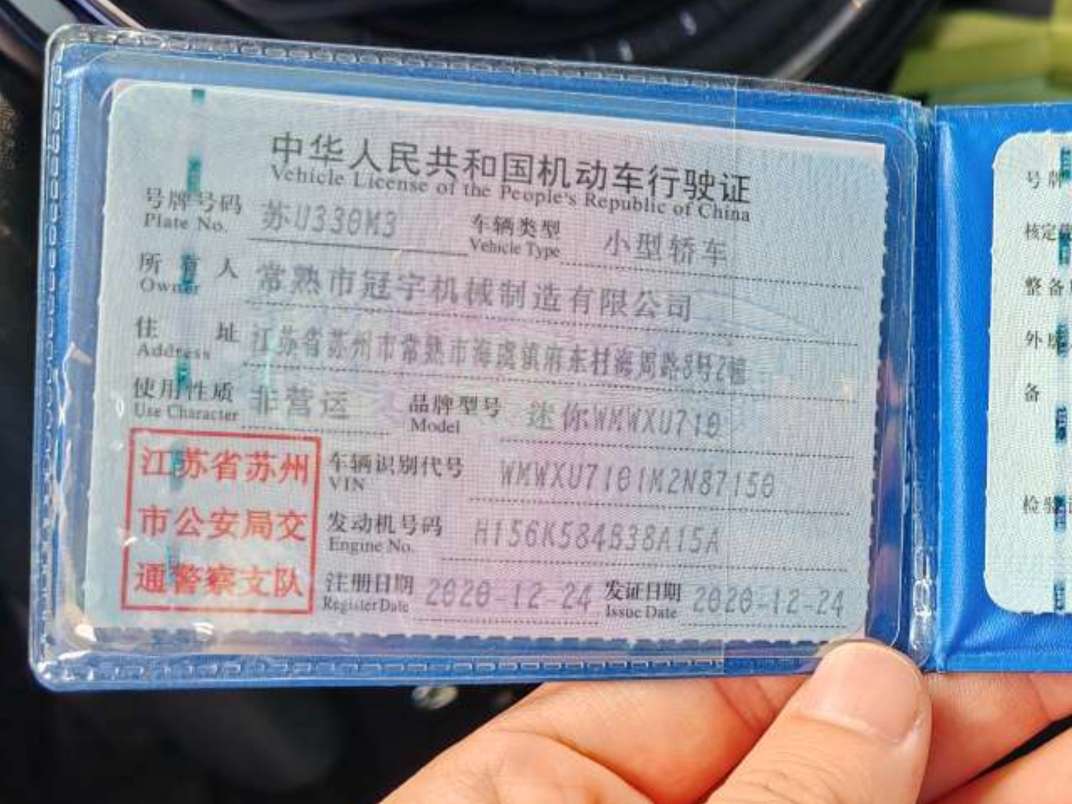 中华人民共和国机动车行驶证
Vehicle License of the People's Republic of China
号牌号码 苏U330M3 车辆类型 小型轿车
Plate No. Vehicle Type
所有人 常熟市冠宇机械制造有限公司
Owner
住址 江苏省苏州市常熟市海虞镇府东村海周路8号2幢
Address
使用性质 非营运 品牌型号 迷你WMWXU710
Use Character Model
江苏省苏州
市公安局交
通警察支队
车辆识别代号 WMWXU7101M2N87150
VIN
发动机号码 H156K584B38A15A
Engine No.
注册日期 2020-12-24 发证日期 2020-12-24
Register Date Issue Date
号牌
核定
整备
外
备
检验